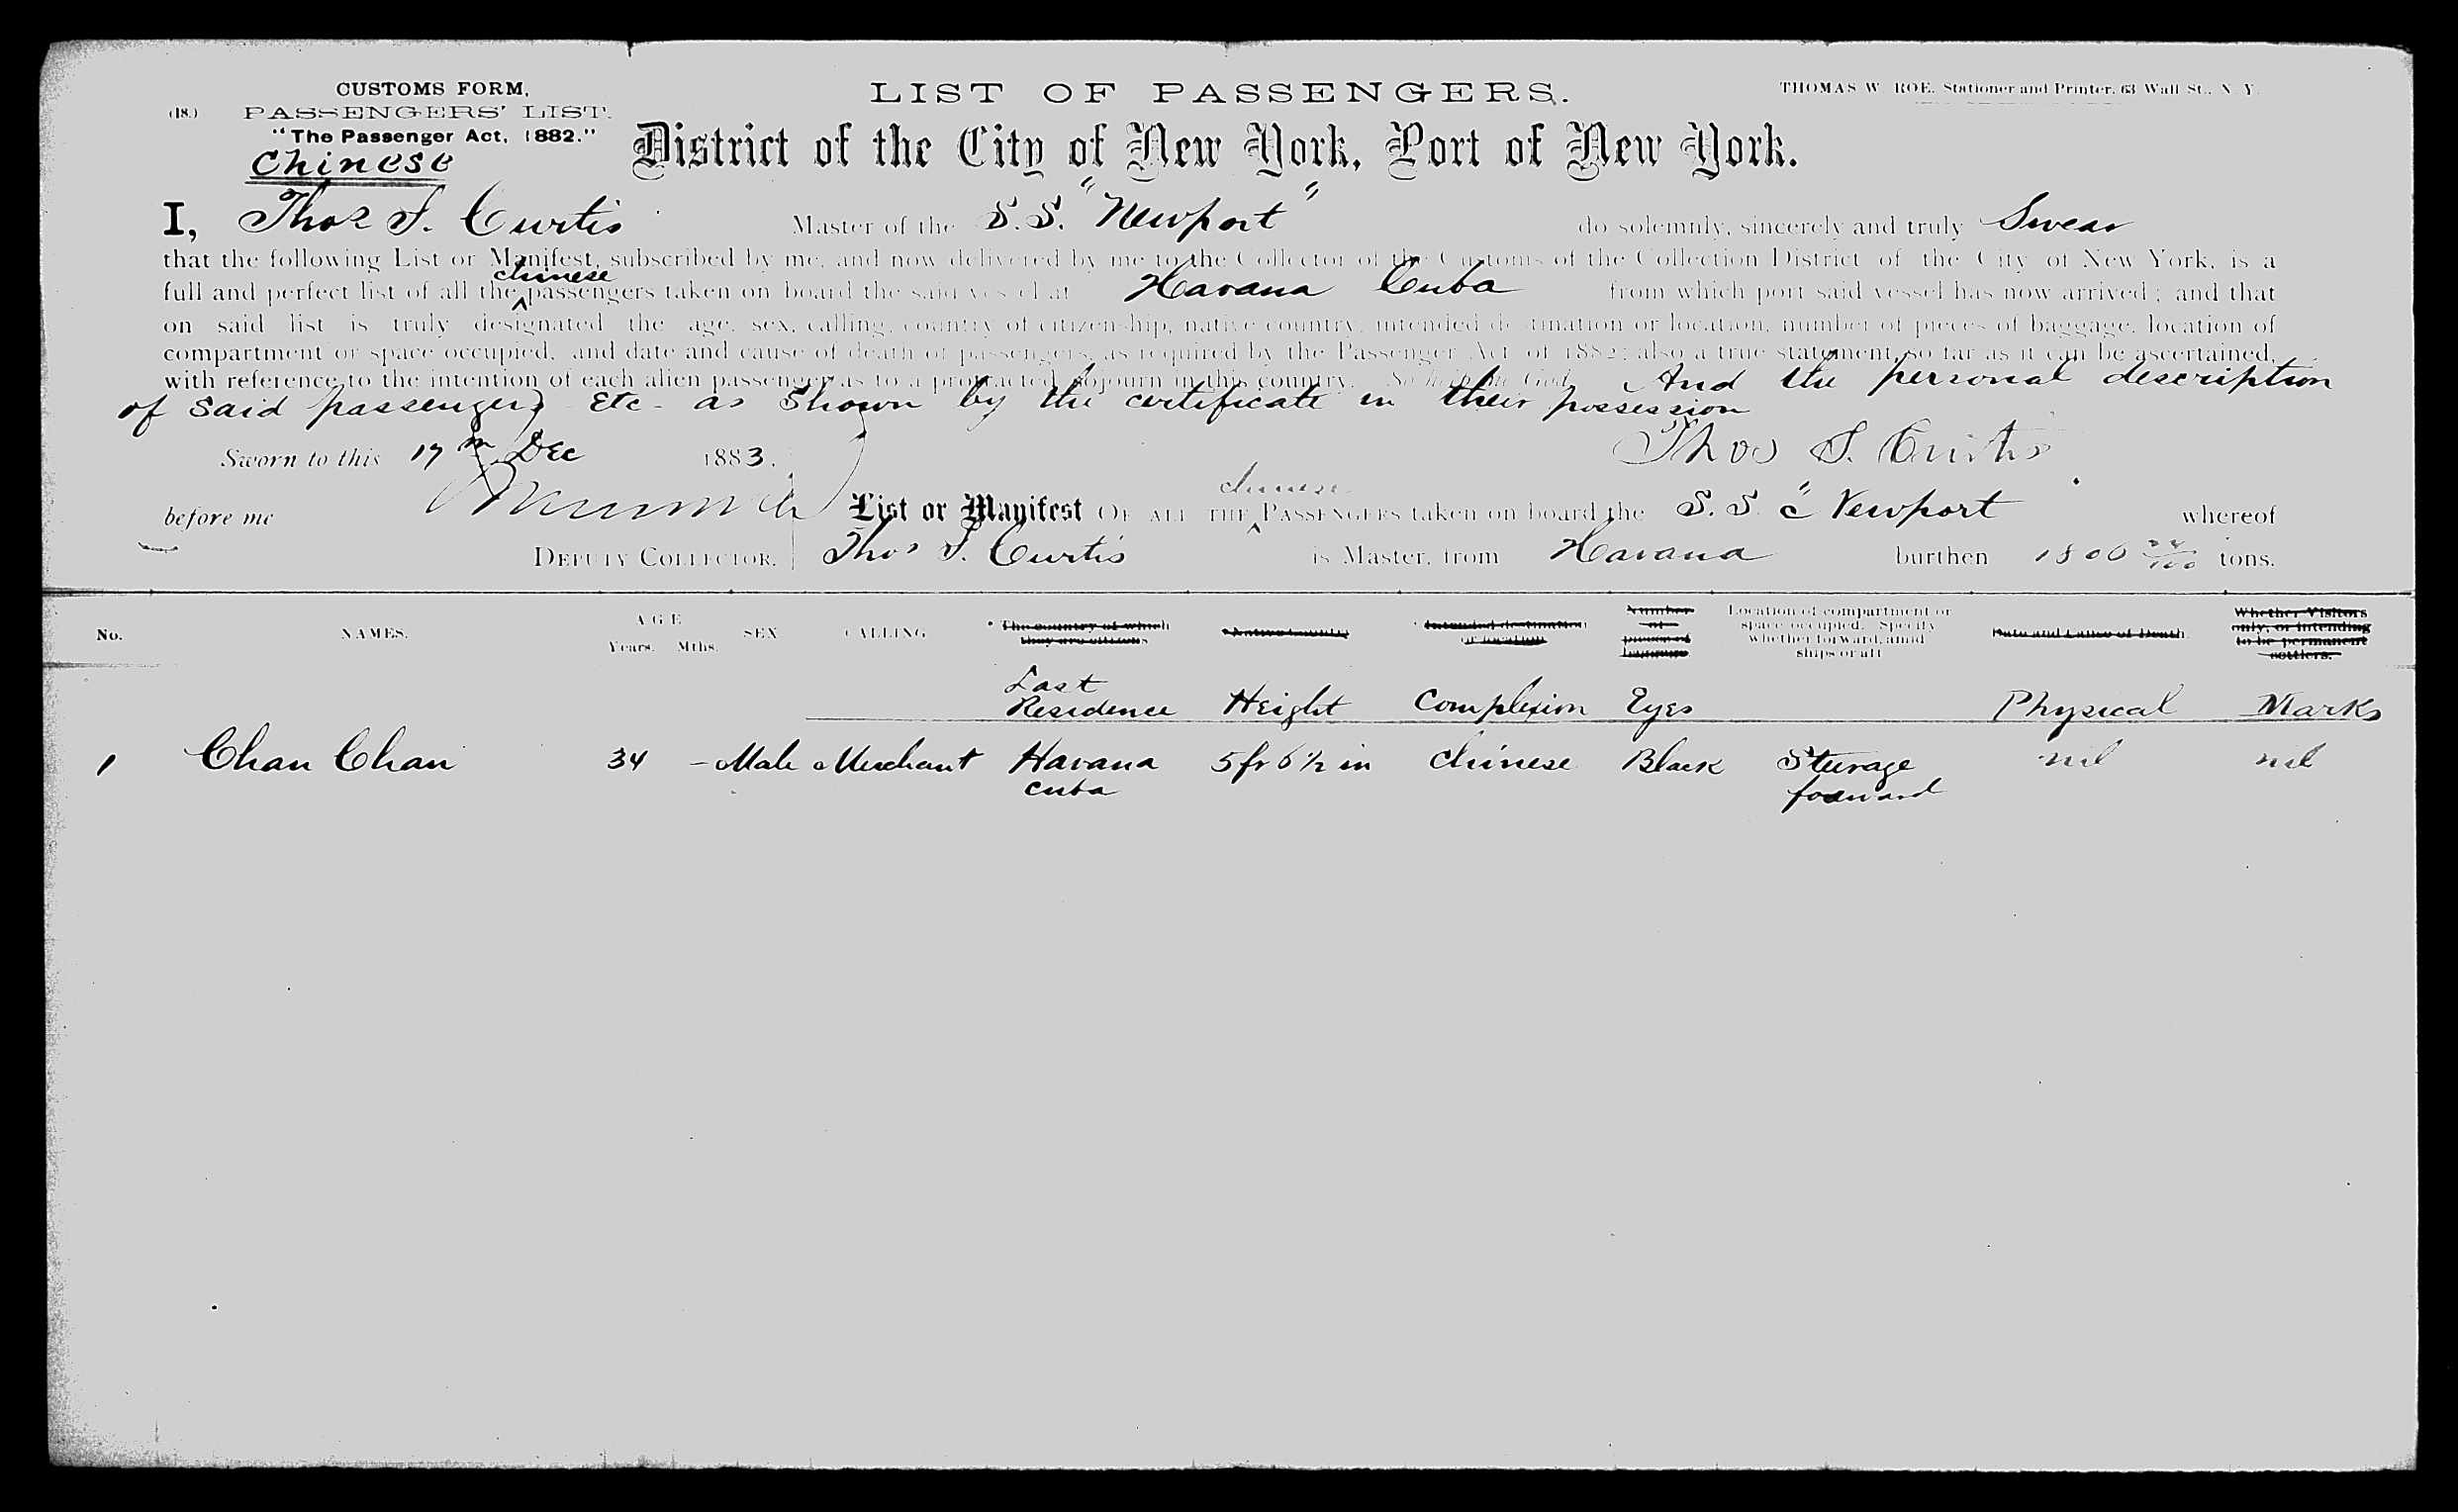 CUSTOMS FORM,
(18.) PASSENGERS' LIST.
"The Passenger Act, 1882."
Chinese
LIST OF PASSENGERS.
THOMAS W. ROE, Stationer and Printer, 63 Wall St., N. Y.
District of the City of New York, Port of New York.
I, Thos F. Curtis Master of the S.S. "Newport" do solemnly, sincerely and truly Swear
that the following List or Manifest, subscribed by me, and now delivered by me to the Collector of the Customs of the Collection District of the City of New York, is a
full and perfect list of all the ^ chinese passengers taken on board the said vessel at Havana Cuba from which port said vessel has now arrived; and that
on said list is truly designated the age, sex, calling, country of citizenship, native country, intended destination or location, number of pieces of baggage, location of
compartment or space occupied, and date and cause of death of passengers, as required by the Passenger Act of 1882; also a true statement, so far as it can be ascertained,
with reference to the intention of each alien passenger as to a protracted sojourn in this country. So help me God. And the personal description
of said passengers Etc as shown by the certificate in their possession
Sworn to this 17th Dec 1883.
Thos F. Curtis
before me
DEPUTY COLLECTOR.
List or Manifest OF ALL THE ^ chinese PASSENGERS taken on board the S.S. "Newport whereof
Thos F. Curtis is Master, from Havana burthen tons.
No. NAMES. AGE Years. Mths. SEX CALLING The country of which they are citizens Native Country Intended destination or location Number of pieces of baggage Location of compartment or space occupied. Specify whether forward, amid ships or aft Date and Cause of Death. Whether Visitors only, or intending to be permanent settlers.
Last Residence Height Complexion Eyes Physical Marks
1 Chan Chan 34 - Male Merchant Havana Cuba 5 ft 6 1/2 in Chinese Black Steerage forward nil nil